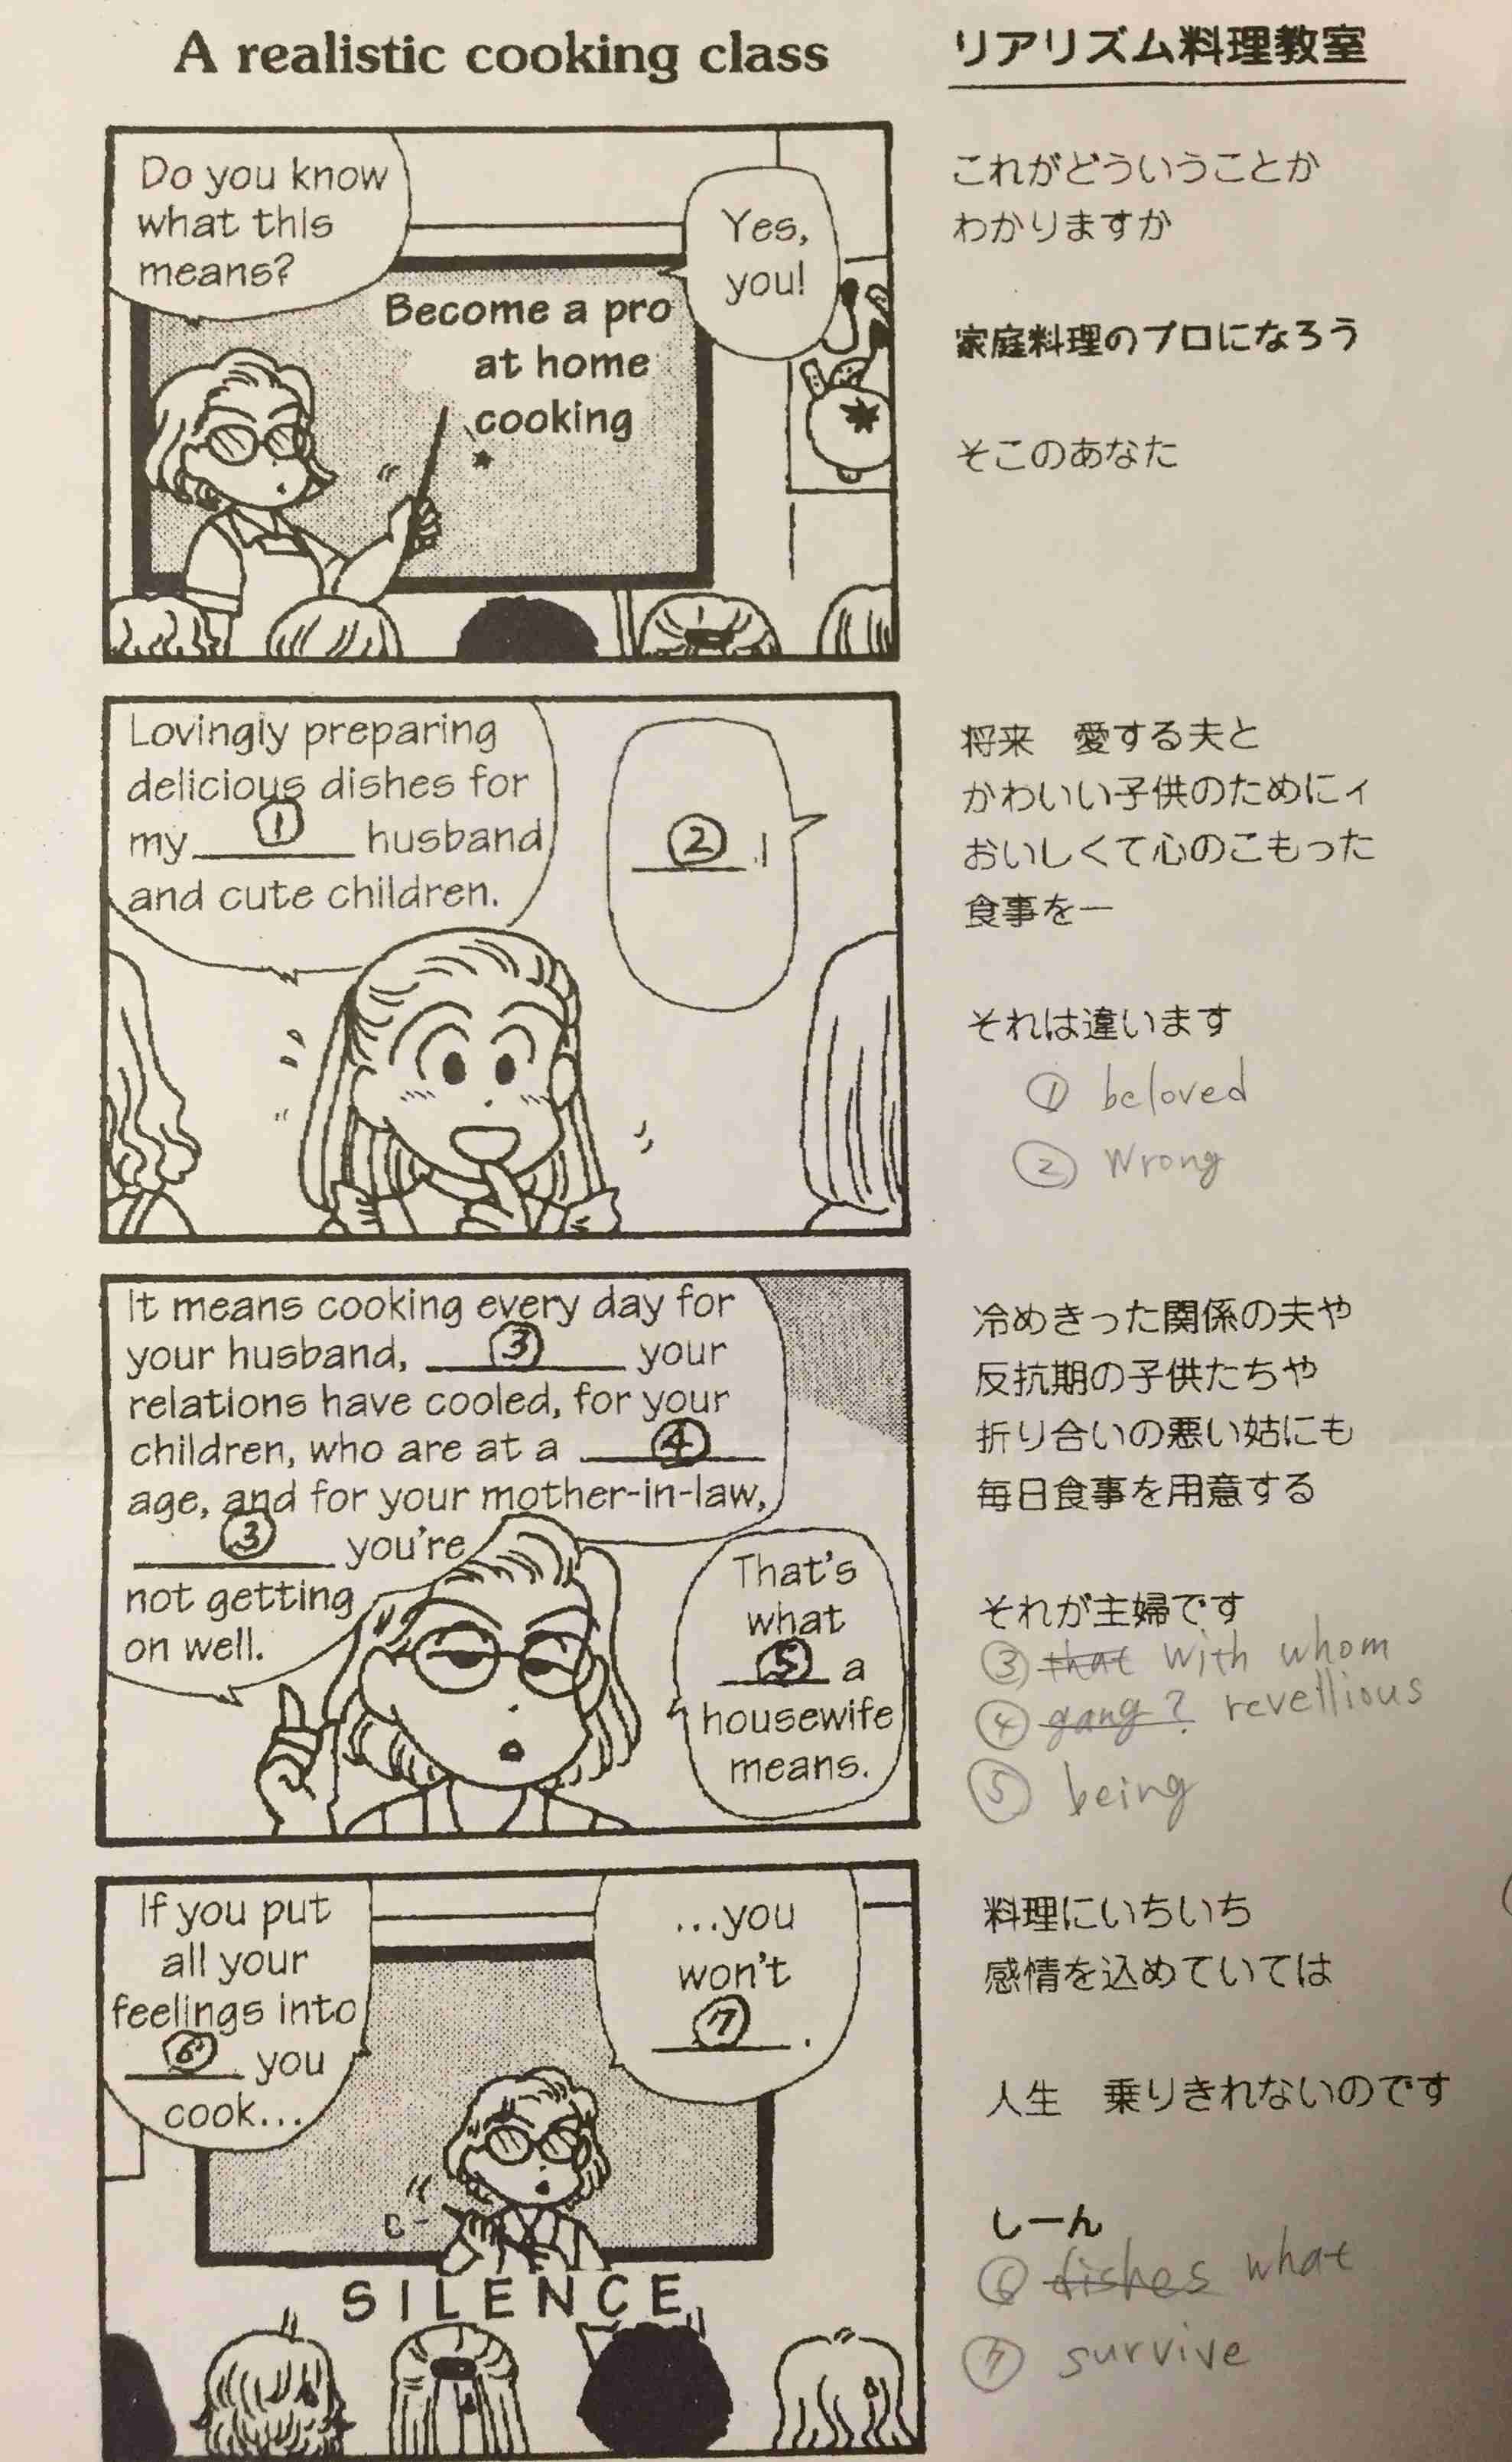 A realistic cooking class
リアリズム料理教室
Do you know
what this
means?
Become a pro
at home
cooking
Yes,
you!
これがどういうことか
わかりますか
家庭料理のプロになろう
そこのあなた
Lovingly preparing
delicious dishes for
my ① husband
and cute children.
② !
将来 愛する夫と
かわいい子供のためにィ
おいしくて心のこもった
食事を一
それは違います
① beloved
② Wrong
It means cooking every day for
your husband, ③ your
relations have cooled, for your
children, who are at a ④
age, and for your mother-in-law,
③ you're
not getting
on well.
That's
what
⑤ a
housewife
means.
冷めきった関係の夫や
反抗期の子供たちや
折り合いの悪い姑にも
毎日食事を用意する
それが主婦です
③ that with whom
④ gang? revellious
⑤ being
If you put
all your
feelings into
⑥ you
cook...
...you
won't
⑦ .
SILENCE
料理にいちいち
感情を込めていては
人生 乗りきれないのです
しーん
⑥ dishes what
⑦ survive